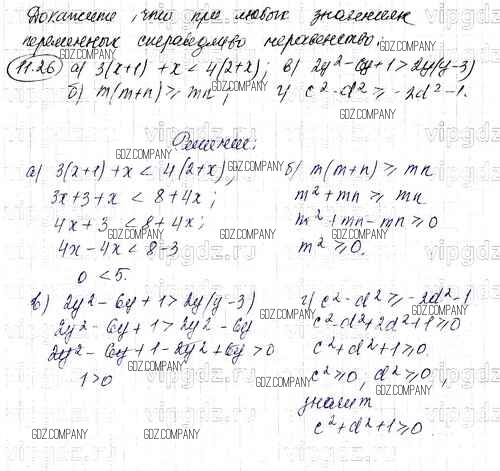 Докажите, что при любых значениях
переменных справедливо неравенство.
11.26 а) 3(x+1)+x < 4(2+x); в) 2y²-6y+1>2y(y-3)
б) m(m+n) ≥ mn; г) c²-d² ≥ -2d²-1.
Решение:
а) 3(x+1)+x < 4(2+x);
3x+3+x < 8+4x;
4x+3 < 8+4x;
4x-4x < 8-3
0 < 5.
б) m(m+n) ≥ mn
m²+mn ≥ mn
m²+mn-mn ≥ 0
m² ≥ 0.
в) 2y²-6y+1 > 2y(y-3)
2y²-6y+1 > 2y²-6y
2y²-6y+1-2y²+6y > 0
1>0
г) c²-d² ≥ -2d²-1
c²-d²+2d²+1 ≥ 0
c²+d²+1 ≥ 0.
c² ≥ 0, d² ≥ 0,
значит
c²+d²+1 ≥ 0.
GDZ.COMPANY
vipgdz.ru